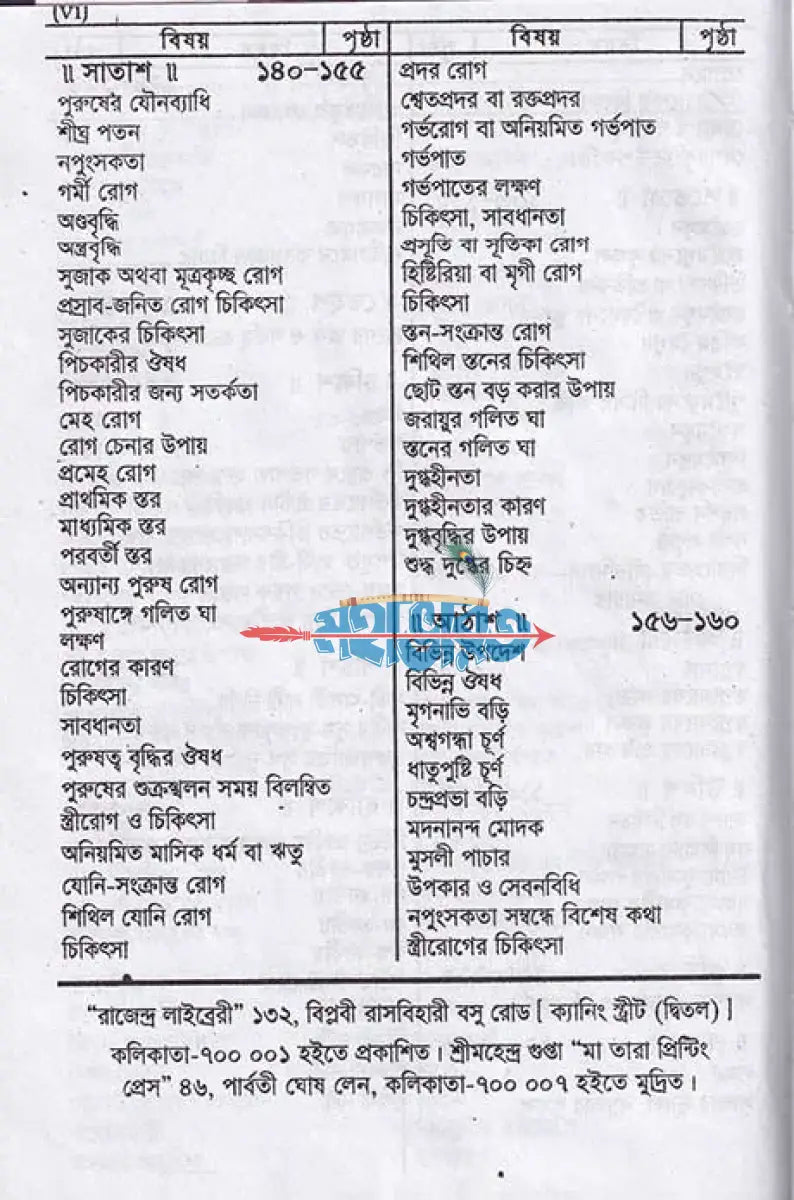 (VI)
বিষয় পৃষ্ঠা
॥ সাতাশ ॥ ১৪০–১৫৫
পুরুষের যৌনব্যাধি
শীঘ্র পতন
নপুংসকতা
গর্মী রোগ
অণ্ডবৃদ্ধি
অন্ত্রবৃদ্ধি
সুজাক অথবা মূত্রকৃচ্ছ রোগ
প্রস্রাব-জনিত রোগ চিকিৎসা
সুজাকের চিকিৎসা
পিচকারীর ঔষধ
পিচকারীর জন্য সতর্কতা
মেহ রোগ
রোগ চেনার উপায়
প্রমেহ রোগ
প্রাথমিক স্তর
মাধ্যমিক স্তর
পরবর্তী স্তর
অন্যান্য পুরুষ রোগ
পুরুষাঙ্গে গলিত ঘা
লক্ষণ
রোগের কারণ
চিকিৎসা
সাবধানতা
পুরুষত্ব বৃদ্ধির ঔষধ
পুরুষের শুক্রস্খলন সময় বিলম্বিত
স্ত্রীরোগ ও চিকিৎসা
অনিয়মিত মাসিক ধর্ম বা ঋতু
যোনি-সংক্রান্ত রোগ
শিথিল যোনি রোগ
চিকিৎসা
বিষয় পৃষ্ঠা
প্রদর রোগ
শ্বেতপ্রদর বা রক্তপ্রদর
গর্ভরোগ বা অনিয়মিত গর্ভপাত
গর্ভপাত
গর্ভপাতের লক্ষণ
চিকিৎসা, সাবধানতা
প্রসূতি বা সূতিকা রোগ
হিষ্টিরিয়া বা মৃগী রোগ
চিকিৎসা
স্তন-সংক্রান্ত রোগ
শিথিল স্তনের চিকিৎসা
ছোট স্তন বড় করার উপায়
জরায়ুর গলিত ঘা
স্তনের গলিত ঘা
দুগ্ধহীনতা
দুগ্ধহীনতার কারণ
দুগ্ধবৃদ্ধির উপায়
শুদ্ধ দুগ্ধের চিহ্ন
॥ আঠাশ ॥ ১৫৬–১৬০
বিভিন্ন উপদেশ
বিভিন্ন ঔষধ
মৃগনাভি বড়ি
অশ্বগন্ধা চূর্ণ
ধাতুপুষ্টি চূর্ণ
চন্দ্রপ্রভা বড়ি
মদনানন্দ মোদক
মুসলী পাচার
উপকার ও সেবনবিধি
নপুংসকতা সম্বন্ধে বিশেষ কথা
স্ত্রীরোগের চিকিৎসা
“রাজেন্দ্র লাইব্রেরী” ১৩২, বিপ্লবী রাসবিহারী বসু রোড [ ক্যানিং স্ট্রীট (দ্বিতল) ]
কলিকাতা-৭০০ ০০১ হইতে প্রকাশিত। শ্রীমহেন্দ্র গুপ্তা “মা তারা প্রিন্টিং
প্রেস” ৪৬, পার্বতী ঘোষ লেন, কলিকাতা-৭০০ ০০৭ হইতে মুদ্রিত।